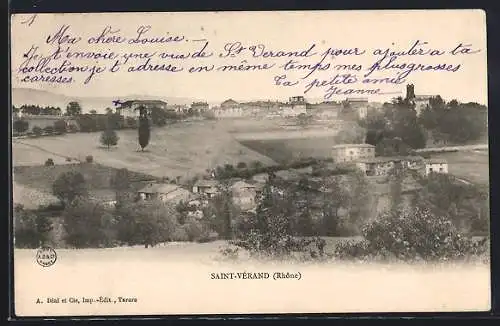 Ma chère Louise. —
J't'envoie une vue de St Verand pour ajouter a ta
collection et je t'adresse en même temps mes plus grosses
caresses.
Ta petite amie
Jeanne
SAINT-VÉRAND (Rhône)
A. Déal et Cie, Imp.-Édit., Tarare